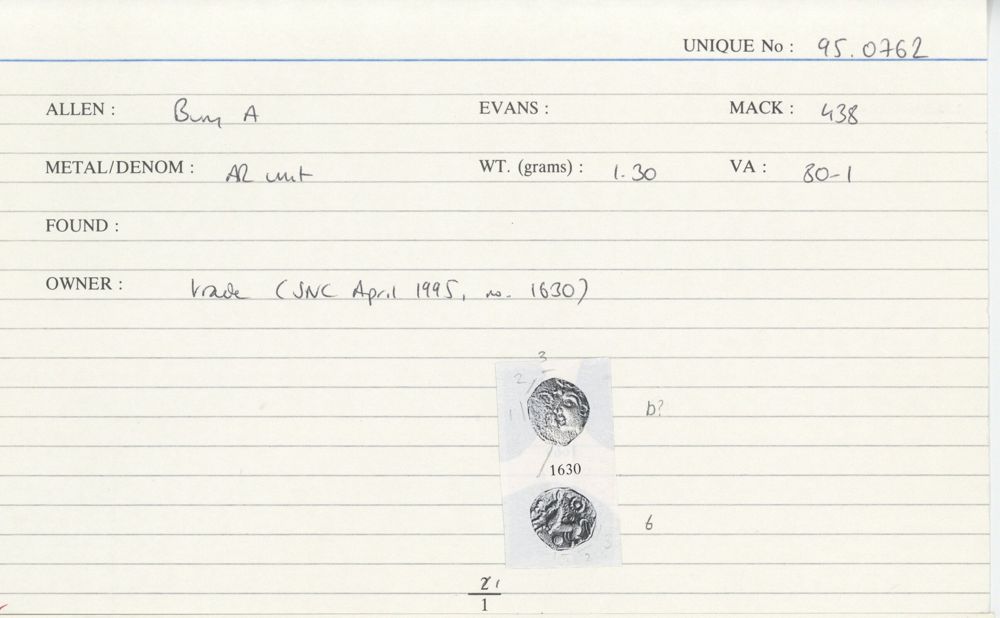 UNIQUE No : 95.0762
ALLEN : Bury A EVANS : MACK : 438
METAL/DENOM : AR unit WT. (grams) : 1.30 VA : 80-1
FOUND :
OWNER : trade (SNC April 1995, no. 1630)
3
2
1
b?
1630
6
1